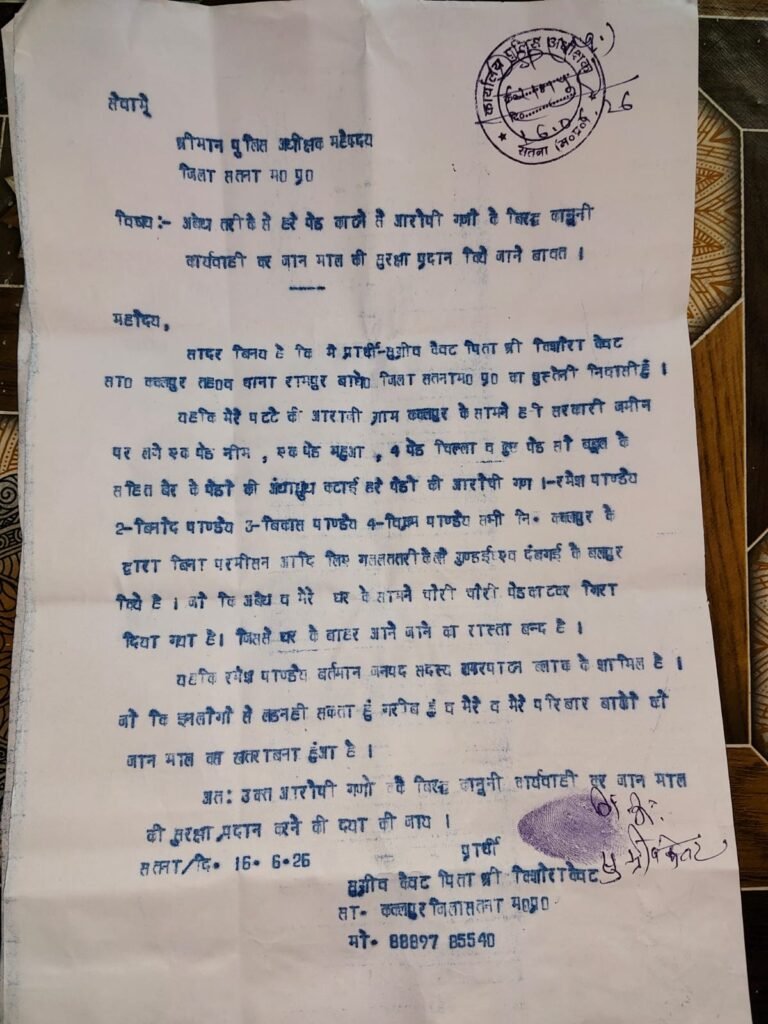 कार्यालय पुलिस अधीक्षक
सतना (म०प्र०)
26
सेवामे
श्रीमान पुलिस अधीक्षक महोदय
जिला सतना म0 प्र0
विषय:- अबैध तरीके से हरे पेड काटने से आरोपी गणो के बिरद्ध कानूनी
कार्यवाही कर जान माल की सुरक्षा प्रदान किये जाने बावत ।
महोदय,
सादर बिनय है कि मै प्रार्थी-सुग्रीव केवट पिता श्री किशोरा केवट
सा0 ककलपुर तह0व थाना रामपुर बाघे0 जिला सतनाम0 प्र0 का पुस्तेनी निवासी हुं ।
यहकि मेरे पटटे की आराजी ग्राम ककलपुर के सामने हरी सरकारी जमीन
पर लगे एक पेड नीम , एक पेड महुआ , 4 पेड चिल्ला व कुछ पेड सो बबूल के
सहित बेर के पेडो की अंधाधुध कटाई हरे पेडो की आरोपी गण 1-रमेश पाण्डेय
2-बिनोद पाण्डेय 3-बिकास पाण्डेय 4-विक्रम पाण्डेय सभी नि॰ ककलपुर के
द्वारा बिना परमीसन आदि लिए गललततरीकेसे गुण्डई एव दंबगई के बलपुर
किये है । जो कि अबैध व मेरे घर के सामने चोरी चोरी पेडकाटकर गिरा
दिया गया है। जिससे घर के बाहर आने जाने का रास्ता बन्द है ।
यहकि रमेश पाण्डेय बर्तमान जनपद सदस्य ब्लाक के शामिल है ।
जो कि इनलोगो से लडनही सकता हुं गरीब हुं व मेरे व मेरे परिबार बालो को
जान माल का खतराबना हुंआ है ।
अत: उक्त आरोपी गणो के बिरद्ध कानूनी कार्यवाही कर जान माल
की सुरक्षा प्रदान करने की दया की जाय ।
सतना/दि॰ 16॰ 6॰26
प्रार्थी
सुग्रीव केवट पिता श्री किशोराकेवट
सा॰ ककलपुर जिलासतना म0प्र0
मो॰ 88897 85540